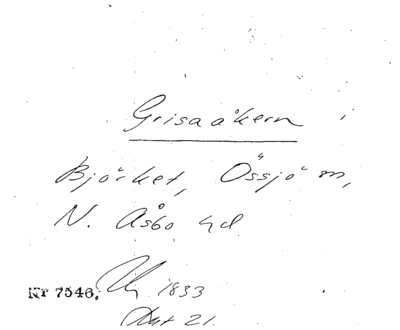 Grisaåkern
Björket, Össjö sn,
N. Åsbo hd
Nr 7546. 1833
Akt 21.